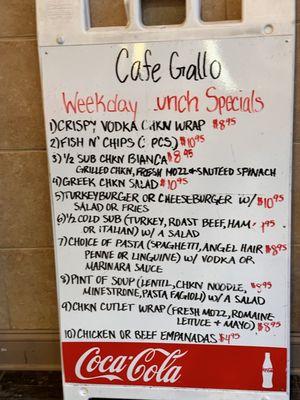 Cafe Gallo
Weekday unch Specials
1) CRISPY VODKA CHKN WRAP $8.95
2) FISH N' CHIPS (3 PCS) $10.95
3) 1/2 SUB CHKN BIANCA $8.95
GRILLED CHKN, FRESH MOZZ & SAUTEED SPINACH
4) GREEK CHKN SALAD $10.95
5) TURKEYBURGER OR CHEESEBURGER W/ $10.95
SALAD OR FRIES
6) 1/2 COLD SUB (TURKEY, ROAST BEEF, HAM
OR ITALIAN) W/ A SALAD
7) CHOICE OF PASTA (SPAGHETTI, ANGEL HAIR $8.95
PENNE OR LINGUINE) W/ VODKA OR
MARINARA SAUCE
8) PINT OF SOUP (LENTIL, CHKN NOODLE, $8.95
MINESTRONE, PASTA FAGIOLI) W/ A SALAD
9) CHKN CUTLET WRAP (FRESH MOZZ, ROMAINE
LETTUCE + MAYO) $8.95
10) CHICKEN OR BEEF EMPANADAS $4.95
Coca-Cola